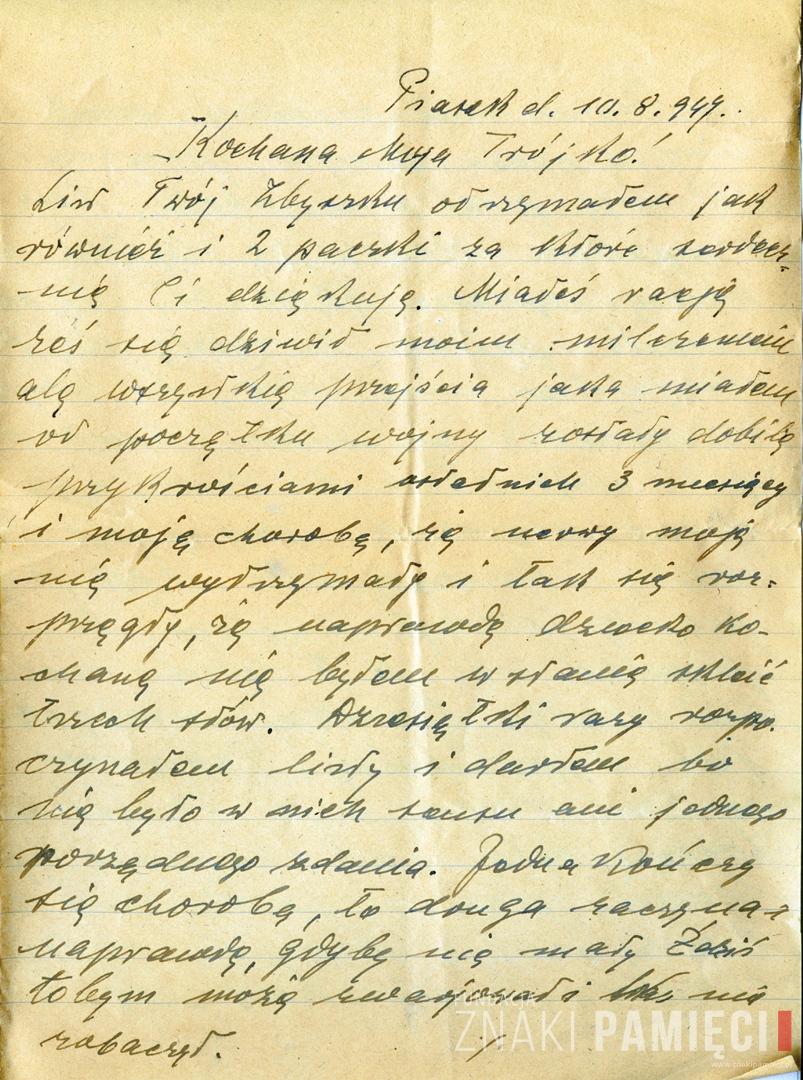 Piasek d. 10. 8. 944.
Kochana Moja Trójko!
List Twój Zbyszku odrzymałem jak
również i 2 paczki za które serdecz-
nię Ci dziękuję. Miałeś rację
żeś się dziwił moim milczeniem
alę wszystkię przejścia jaka miałem
od początku wojny zostały dobitę
przykrościami ostatnich 3 miesięcy
i moją chorobą, żę nerwy moję
nię wydrzymały i tak się roz-
pręgły, żę naprawdę dziecko ko-
chanę nię byłem w stanię sklecić
trzech słów. Dziesiętki razy rozpo-
czynałem listy i darłem bo
nię było w nich sensu ani jednego
porządnego zdania. Jedna kończy
się choroba, to druga zaczyna-
naprawdę, gdyby nię mały Zdziś
tobym możę zwarjował i nie
zobaczył.
FUNDACJA
ZNAKI PAMIĘCI
www.znakipamieci.pl